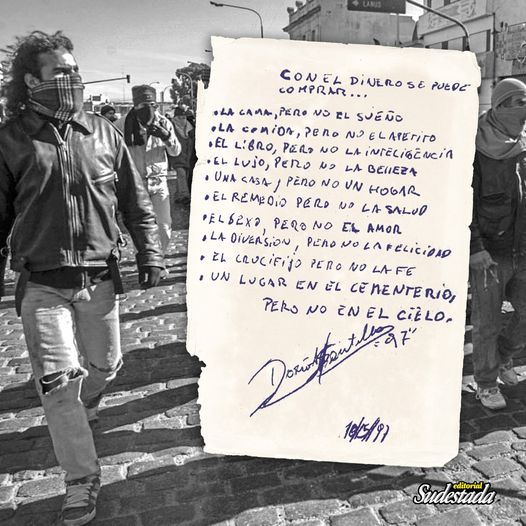 LANUS
CON EL DINERO SE PUEDE
COMPRAR...
• LA CAMA, PERO NO EL SUEÑO
• LA COMIDA, PERO NO EL APETITO
• EL LIBRO, PERO NO LA INTELIGENCIA
• EL LUJO, PERO NO LA BELLEZA
• UNA CASA, PERO NO UN HOGAR
• EL REMEDIO PERO NO LA SALUD
• EL SEXO, PERO NO EL AMOR
• LA DIVERSIÓN, PERO NO LA FELICIDAD
• EL CRUCIFIJO PERO NO LA FE
• UN LUGAR EN EL CEMENTERIO,
PERO NO EN EL CIELO.
Darío Santillán
97"
editorial
Sudestada